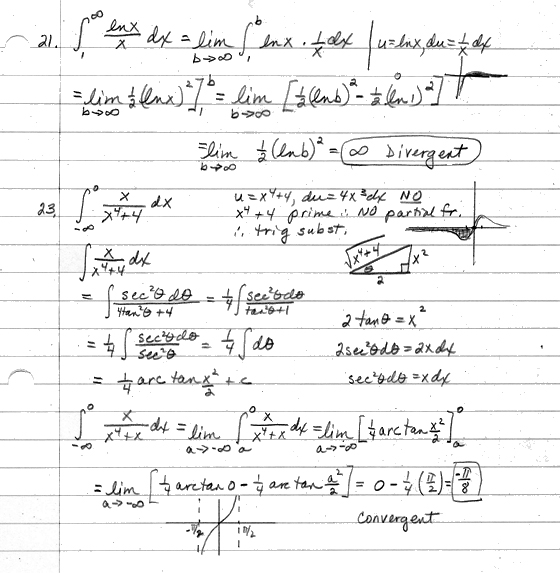 21. ∫₁^∞ lnx/x dx = lim_{b→∞} ∫₁^b lnx · 1/x dx | u = lnx, du = 1/x dx
= lim_{b→∞} ½(lnx)²]₁^b = lim_{b→∞} [½(lnb)² - ½(ln1)²] 0
= lim_{b→∞} ½(lnb)² = ∞ Divergent
23. ∫_{-∞}^0 x/(x⁴+4) dx u = x⁴+4, du = 4x³dx NO
x⁴+4 prime ∴ NO partial fr.
∴ trig subst.
∫ x/(x⁴+4) dx √(x⁴+4) x² θ 2
= ∫ sec²θ dθ/(4tan²θ + 4) = ¼ ∫ sec²θ dθ/(tan²θ+1) 2 tanθ = x²
= ¼ ∫ sec²θ dθ/sec²θ = ¼ ∫ dθ 2sec²θ dθ = 2x dx
= ¼ arc tan x²/2 + c sec²θ dθ = x dx
∫_{-∞}^0 x/(x⁴+x) dx = lim_{a→-∞} ∫_a^0 x/(x⁴+x) dx = lim_{a→-∞} [¼ arc tan x²/2]_a^0
= lim_{a→-∞} [¼ arctan 0 - ¼ arc tan a²/2] = 0 - ¼(π/2) = -π/8
-π/2 π/2 convergent